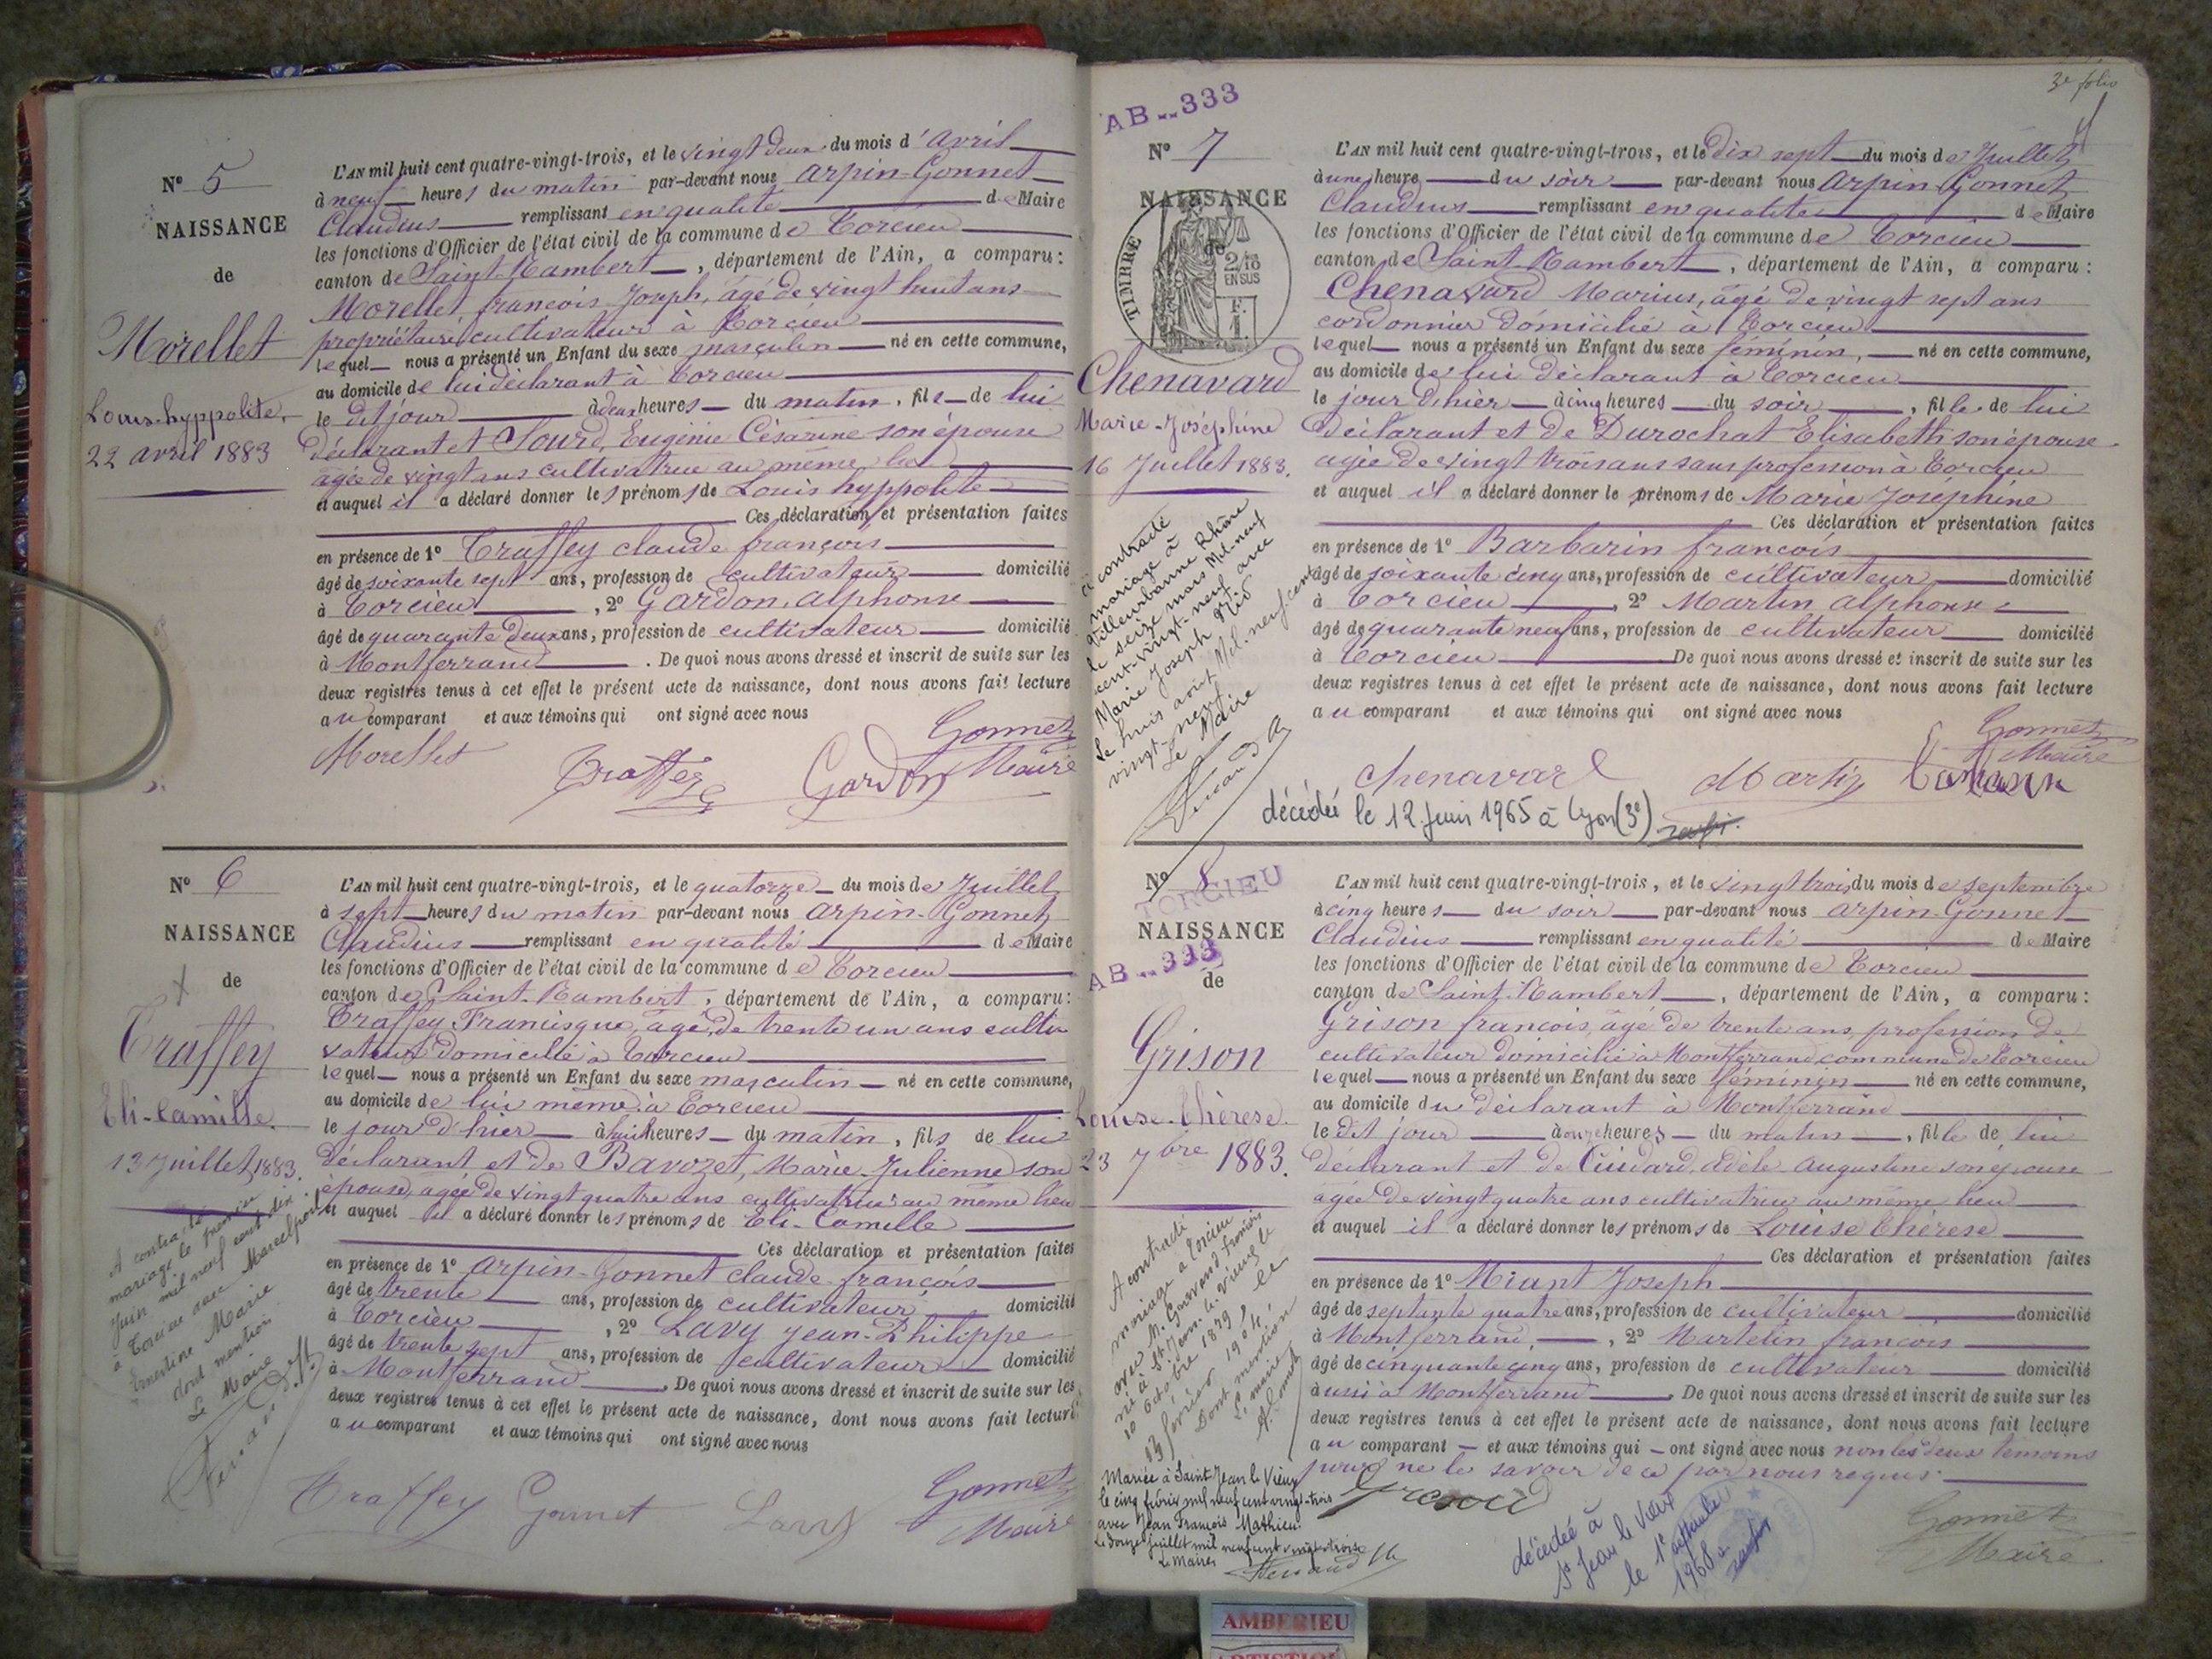 N° 5
NAISSANCE
de
Morellet
Louis-hyppolite.
22 avril 1883
L'AN mil huit cent quatre-vingt-trois, et le vingt deux du mois d'avril
à neuf heures du matin par-devant nous Arpin-Gonnet
Claudius remplissant en qualité de Maire
les fonctions d'Officier de l'état civil de la commune de Torcieu
canton de Saint-Rambert, département de l'Ain, a comparu :
Morellet, françois Joseph, âgé de vingt huit ans
propriétaire cultivateur à Torcieu
lequel nous a présenté un Enfant du sexe masculin né en cette commune,
au domicile de lui déclarant à Torcieu
le dit jour à deux heures du matin, fils de lui
déclarant et Sourd, Eugénie Césarine son épouse
agée de vingt ans cultivatrice au même lieu
et auquel il a déclaré donner les prénoms de Louis hyppolite
Ces déclaration et présentation faites
en présence de 1° Traffey claude françois
âgé de soixante sept ans, profession de cultivateur domicilié
à Torcieu, 2° Gardon, alphonse
âgé de quarante deux ans, profession de cultivateur domicilié
à Montferrand. De quoi nous avons dressé et inscrit de suite sur les
deux registres tenus à cet effet le présent acte de naissance, dont nous avons fait lecture
au comparant et aux témoins qui ont signé avec nous
Morellet Traffey Gardon Gonnet
Maire
N° 6
NAISSANCE
de
Traffey
Eli-Camille.
13 Juillet 1883.
A contracté
mariage le premier
Juin mil neuf cent dix
à Torcieu avec Marcelpoil
Ernestine Marie
dont mention
Le Maire
L'AN mil huit cent quatre-vingt-trois, et le quatorze du mois de Juillet
à sept heures du matin par-devant nous Arpin-Gonnet
Claudius remplissant en qualité de Maire
les fonctions d'Officier de l'état civil de la commune de Torcieu
canton de Saint-Rambert, département de l'Ain, a comparu :
Traffey, Francisque, âgé de trente un ans culti
vateur domicilié à Torcieu
lequel nous a présenté un Enfant du sexe masculin né en cette commune,
au domicile de lui même à Torcieu
le jour d'hier à huit heures du matin, fils de lui
déclarant et de Bavozet, Marie-Julienne son
épouse, agée de vingt quatre ans cultivatrice au même lieu
et auquel il a déclaré donner les prénoms de Eli-Camille
Ces déclaration et présentation faites
en présence de 1° Arpin-Gonnet claude-françois
âgé de trente ans, profession de cultivateur domicilié
à Torcieu, 2° Lavy Jean-Philippe
âgé de trente sept ans, profession de cultivateur domicilié
à Montferrand. De quoi nous avons dressé et inscrit de suite sur les
deux registres tenus à cet effet le présent acte de naissance, dont nous avons fait lecture
au comparant et aux témoins qui ont signé avec nous
Traffey Gonnet Lavy Gonnet
Maire
3e folio
AB..333
N° 7
NAISSANCE
de
TIMBRE
2/10
EN SUS
F.
1
Chenavard
Marie-Joséphine
16 Juillet 1883.
a contracté
mariage à
Villeurbanne Rhône
le seize mars Mil-neuf
cent-vingt-neuf avec
Marie Joseph
Le huit août Mil-neuf cent
vingt-neuf
Le Maire
L'AN mil huit cent quatre-vingt-trois, et le dix sept du mois de Juillet
à une heure du soir par-devant nous Arpin Gonnet
Claudius remplissant en qualité de Maire
les fonctions d'Officier de l'état civil de la commune de Torcieu
canton de Saint-Rambert, département de l'Ain, a comparu :
Chenavard Marius, âgé de vingt sept ans
cordonnier domicilié à Torcieu
lequel nous a présenté un Enfant du sexe féminin, né en cette commune,
au domicile de lui déclarant à Torcieu
le jour d'hier à cinq heures du soir, fille de lui
déclarant et de Durochat Elisabeth son épouse
agée de vingt trois ans sans profession à Torcieu
et auquel il a déclaré donner le prénoms de Marie Joséphine
Ces déclaration et présentation faites
en présence de 1° Barbarin françois
âgé de soixante cinq ans, profession de cultivateur domicilié
à Torcieu, 2° Martin, alphonse
âgé de quarante neuf ans, profession de cultivateur domicilié
à Torcieu De quoi nous avons dressé et inscrit de suite sur les
deux registres tenus à cet effet le présent acte de naissance, dont nous avons fait lecture
au comparant et aux témoins qui ont signé avec nous
Gonnet
Maire
chenavard Martin
décédée le 12 Juin 1965 à Lyon (3e)
N° 8
TORCIEU
NAISSANCE
AB..333
de
Grison
Louise-Thérèse.
23 7bre 1883.
A contracté
mariage à Torcieu
avec M. Genevand françois
né à St Jean-le-Vieux le
10 octobre 1879, le
13 février 1904
Dont mention
Le maire
Mariée à Saint Jean le Vieux
le cinq février mil neuf cent vingt-trois
avec Jean François Mathieu.
Le douze juillet mil neuf cent vingt-trois
Le Maire
L'AN mil huit cent quatre-vingt-trois, et le vingt trois du mois de septembre
à cinq heures du soir par-devant nous Arpin-Gonnet
Claudius remplissant en qualité de Maire
les fonctions d'Officier de l'état civil de la commune de Torcieu
canton de Saint-Rambert, département de l'Ain, a comparu :
Grison françois, âgé de trente ans, profession de
cultivateur domicilié à Montferrand commune de Torcieu
lequel nous a présenté un Enfant du sexe féminin né en cette commune,
au domicile du déclarant à Montferrand
le dit jour à onze heures du matin, fille de lui
déclarant et de Cuidard, Adèle Augustine son épouse
agée de vingt quatre ans cultivatrice au même lieu
et auquel il a déclaré donner les prénoms de Louise Thérese
Ces déclaration et présentation faites
en présence de 1° Miant Joseph
âgé de septante quatre ans, profession de cultivateur domicilié
à Montferrand, 2° Martelin françois
âgé de cinquante cinq ans, profession de cultivateur domicilié
aussi à Montferrand. De quoi nous avons dressé et inscrit de suite sur les
deux registres tenus à cet effet le présent acte de naissance, dont nous avons fait lecture
au comparant et aux témoins qui ont signé avec nous non les deux temoins
pour ne le savoir de ce par nous requis.
Grison
décédée à
St Jean le Vieux
le 1er septembre
1968
Gonnet
Maire
AMBERIEU